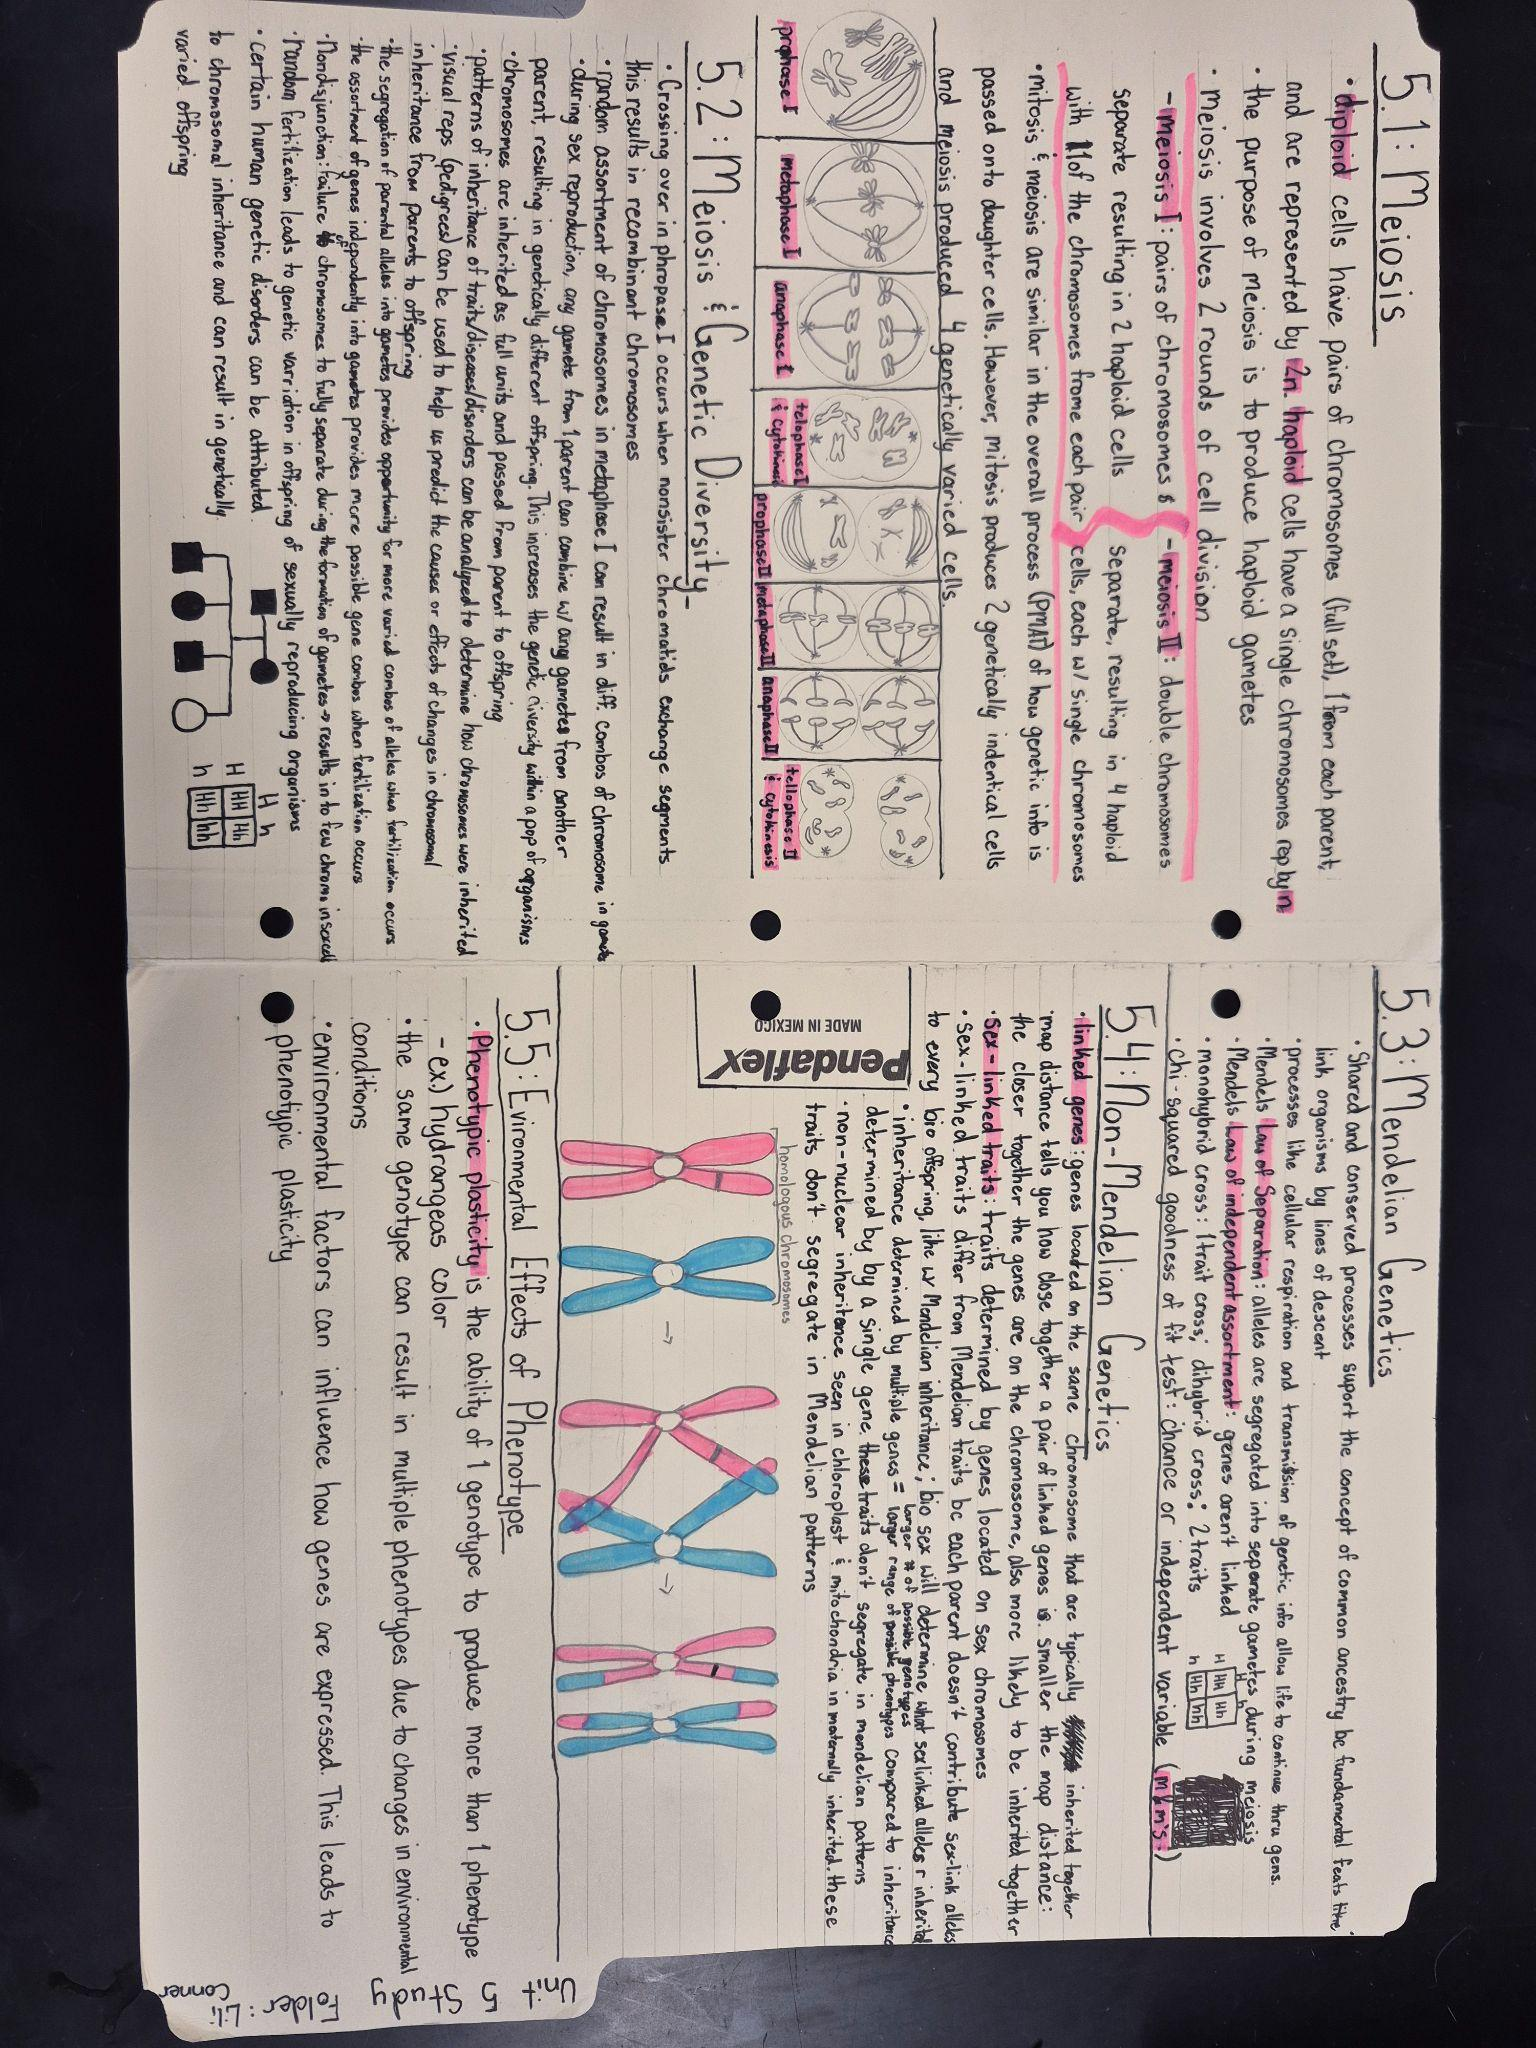 5.1: Meiosis
• diploid cells haive pairs of chromosomes (full set), 1 from each parent,
and are represented by 2n. haploid cells have a single chromosomes rep by n
• the purpose of meiosis is to produce haploid gametes
• meiosis involves 2 rounds of cell division
- meiosis I: pairs of chromosomes &
separate resulting in 2 haploid cells
with 11 of the chromosomes frome each pair
- meiosis II: double chromosomes
separate, resulting in 4 haploid
cells, each w/ single chromosomes
• mitosis & meiosis are similar in the overall process (PMAT) of how genetic info is
passed onto daughter cells. However, mitosis produces 2 genetically indentical cells
and meiosis produced 4 genetically varied cells.
prophase I
metaphase I
anaphase I
telophase I
& cytokinesis
prophase II
metaphase II
anaphase II
tellophase II
& cytokinesis
5.2: Meiosis & Genetic Diversity
• Crossing over in phropase I occurs when nonsister chromatids exchange segments
this results in recombinant chromosomes
• random assortment of chromosomes in metaphase I can result in diff. combos of chromosome in gametes
• during sex reproduction, any gamete from 1 parent can combine w/ any gametes from another
parent, resulting in genetically different offspring. This increases the genetic diversity within a pop of organisms
• chromosomes are inherited as full units and passed from parent to offspring
• patterns of inheritance of traits/diseases/disorders can be analyzed to determine how chromosomes were inherited
• visual reps (pedigrees) can be used to help us predict the causes or effects of changes in chromosomal
inheritance from parents to offspring
• the segregation of parental alleles into gametes provides opportunity for more varied combos of alleles when fertilization occurs
• the assortment of genes independently into gametes provides more possible gene combos when fertilization occurs
• Nondisjunction: failure of chromosomes to fully separate during the formation of gametes → results in to few chromo in sex cells
• random fertilization leads to genetic varriation in offspring of sexually reproducing organisms
• certain human genetic disorders can be attributed
to chromosomal inheritance and can result in genetically
varied offspring
H h
H HH Hh
h Hh hh
5.3: Mendelian Genetics
• Shared and conserved processes suport the concept of common ancestry be fundamental feats
link organisms by lines of descent
• processes like cellular respiration and transmission of genetic info allow life to continue thru gens.
• Mendels Law of Separation: alleles are segregated into separate gametes during meiosis
• Mendels Law of independent assortment: genes aren't linked
• monohybrid cross: 1 trait cross; dihybrid cross: 2 traits
• chi-squared goodness of fit test: chance or independent variable (m&m's)
H h
H HH Hh
h Hh hh
5.4: Non-Mendelian Genetics
• linked genes: genes located on the same chromosome that are typically inherited together
• map distance tells you how close together a pair of linked genes is. smaller the map distance:
the closer together the genes are on the chromosome, also more likely to be inherited together
• sex-linked traits: traits determined by genes located on sex chromosomes
• sex-linked traits differ from Mendelian traits bc each parent doesn't contribute sex-link alleles
to every bio offspring, like w/ Mendelian inheritance; bio sex will determine what sex linked alleles r inherited
• inheritance determined by multiple genes = larger # of possible genotypes
larger range of possible phenotypes compared to inheritance
determined by by a single gene. these traits don't segregate in mendelian patterns
• non-nuclear inheritance seen in chloroplast & mitochondria in maternally inherited. these
traits don't segregate in Mendelian patterns
Pendaflex
MADE IN MEXICO
homologous chromosomes
5.5: Environmental Effects of Phenotype
• Phenotypic plasticity is the ability of 1 genotype to produce more than 1 phenotype
- ex) hydrangeas color
• the same genotype can result in multiple phenotypes due to changes in environmental
conditions
• environmental factors can influence how genes are expressed. This leads to
phenotypic plasticity
Unit 5 Study Folder: Lili
Conner